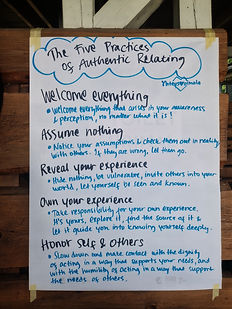 The Five Practices
of Authentic Relating
Welcome everything
• Welcome everything that arises in your awareness
& perception, no matter what it is!
Assume nothing
• Notice your assumptions & check them out in reality
with others. If they are wrong, let them go.
Reveal your experience
• Hide nothing, be vulnerable, invite others into your
world, let yourself be seen and known.
Own your experience
• Take responsibility for your own experience.
It's yours, explore it, find the source of it &
let it guide you into knowing yourself deeply.
Honor Self & Others
• Slow down and make contact with the dignity
of acting in a way that supports your needs, and
with the humility of acting in a way that supports
the needs of others.